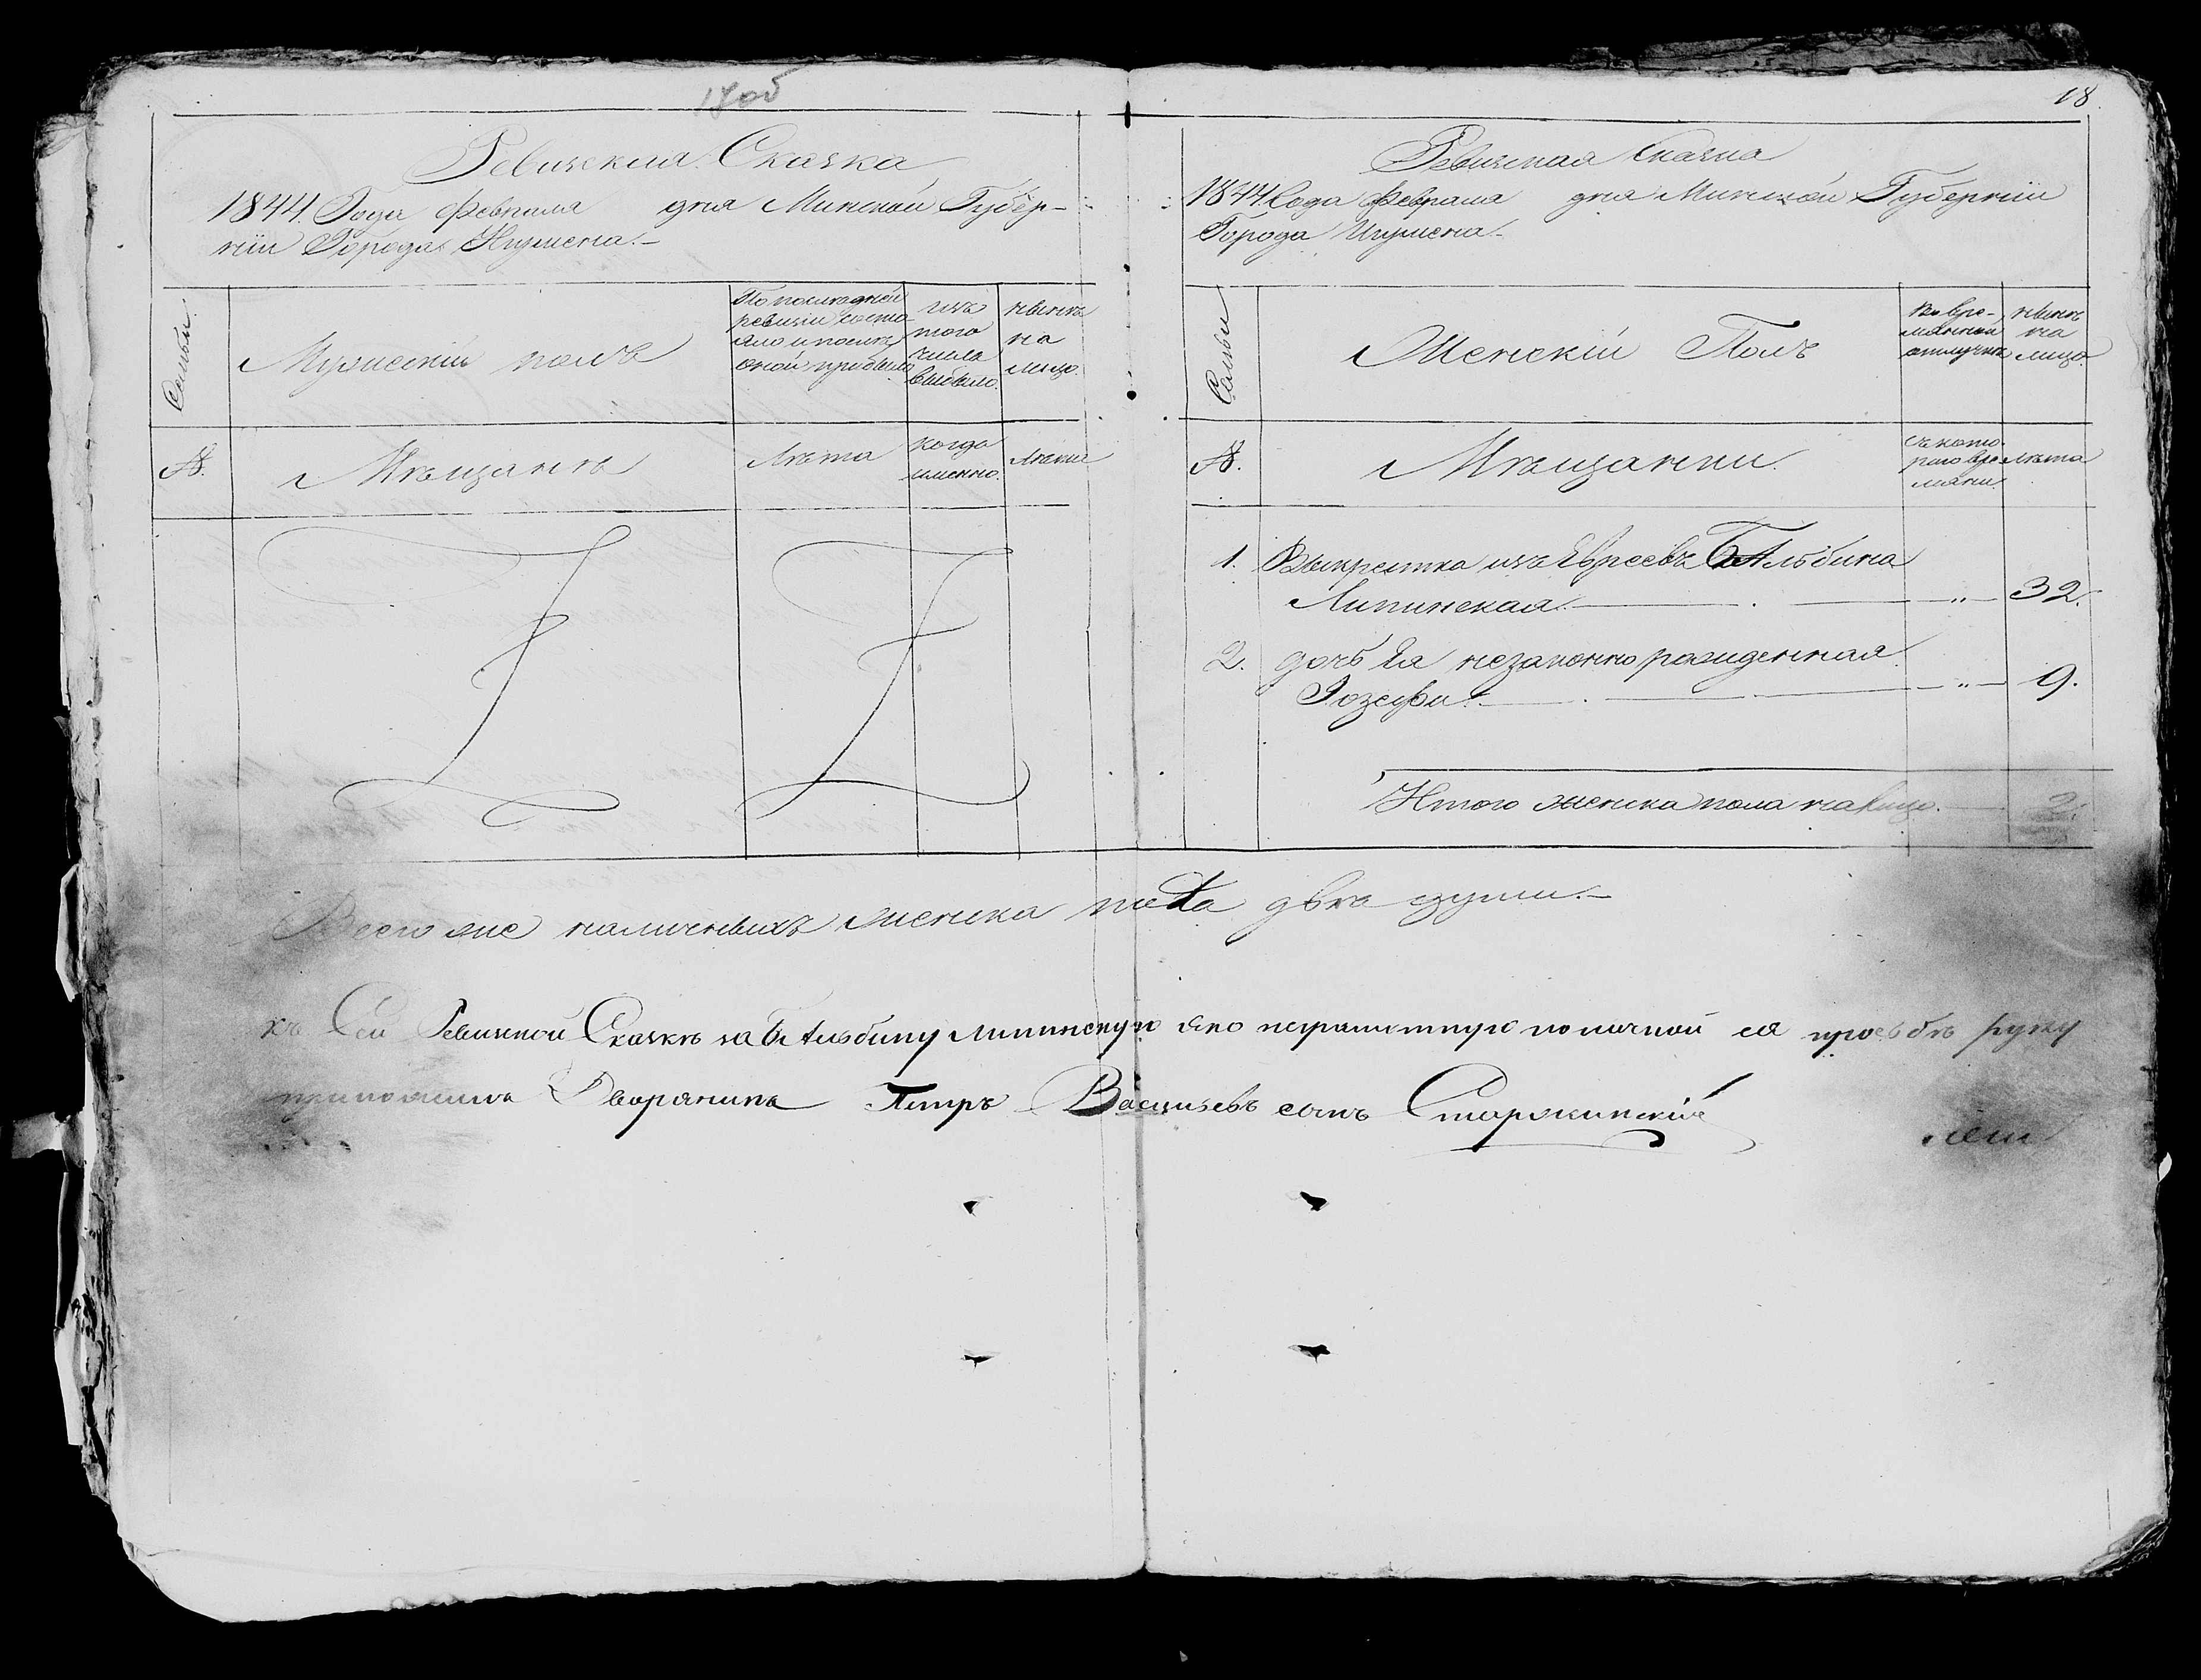 17об
Ревизская Сказка
1844. Года Февраля дня Минской Губер-
нии Города Игумена.-
Семьи.
Мужеский полъ
По последней
ревизии состо-
яло и после
оной прибыло
изъ
того
числа
выбыло.
ныне
на
лицо.
№.
Мещане
Лета
когда
именно.
Лета
18.
Ревизская Сказка
1844 Года Февраля дня Минской Губернии
Города Игумена.-
Семьи
Женский Полъ
Во вре-
мянной
отлучке
ныне
на
лицо.
№.
Мещанки.
съ кото-
раго вре
мяни.
лета
1. Выкрестка изъ Евреевъ Альбина
Липинская. " 32.
2. дочь Ея незаконно рожденная
Иозефа. " 9.
Итого женска пола на лицо. 2.
Всего же наличныхъ женска пола две души.-
къ Сей Ревизской Сказке за Альбину Липинскую яко неграмотную по личной ея прозьбе руку
приложилъ Дворянинъ Петръ Васильевъ сынъ Старжинский